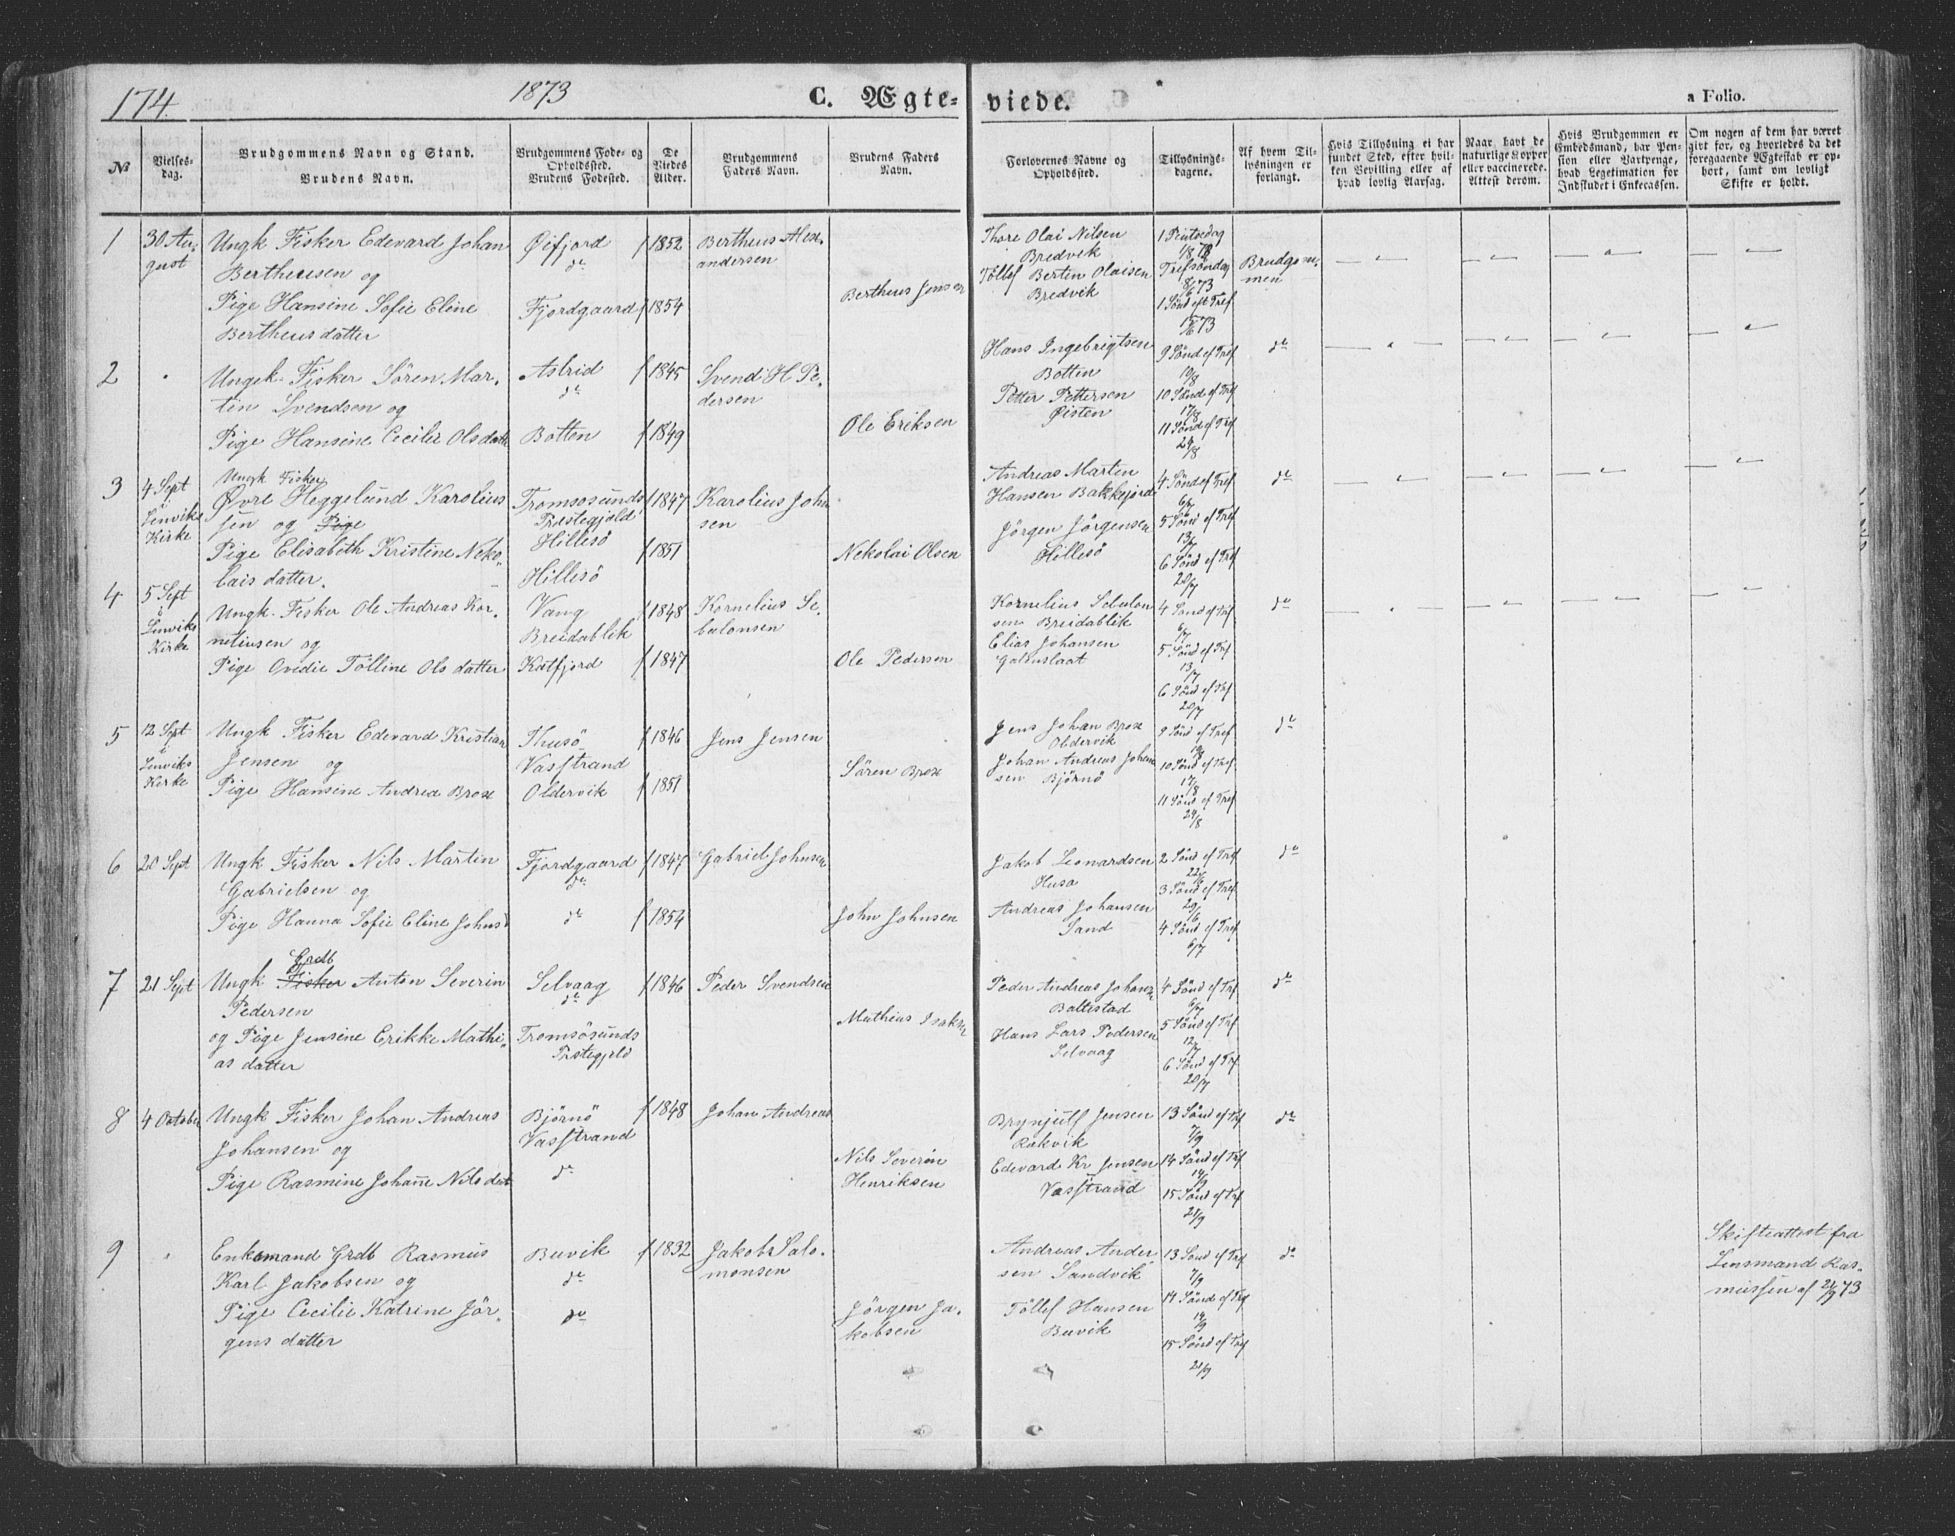 174.
1873
C. Ægte-viede.
a Folio.
No
Vielses-
dag.
Brudgommens Navn og Stand.
Brudens Navn.
Brudgommens Føde- og
Opholdssted.
Brudens Fødested.
De
Viedes
Alder.
Brudgommens
Faders Navn.
Brudens Faders
Navn.
Forlovernes Navne og
Opholdssted.
Tillysnings-
dagene.
Af hvem Til-
lysningen er
forlangt.
Hvis Tillysning ei har
fundet Sted, efter hvil-
ken Bevilling eller af
hvad lovlig Aarsag.
Naar havt de
naturlige Kopper
eller vaccinerede.
Attest derom.
Hvis Brudgommen er
Embedsmand, har Pen-
sion eller Vartpenge,
hvad Legetimation for
Indskudet i Enkecassen.
Om nogen af dem har været
gift før, og hvorledes da det
foregaaende Ægteskab er op-
hørt, samt om lovligt
Skifte er holdt.
1
30 Au-
gust
Ungk Fisker Edevard Johan
Bertheusen og
Pige Hansine Sofie Eline
Bertheusdatter
Øifjord
do
Fjordgaard
f 1852
f 1854
Bertheus Alex-
andersen
Bertheus Jonsen
Thore Olai Nilsen
Bredvik
Tollef Bertin Olaisen
Bredvik
1 Pintsedag
1/6 73
Trefsöndag
8/6 73
1 Sönd eft Tref
15/6 73
Brudgom-
men
2
Ungk. Fisker Sören Mar-
tin Svendsen og
Pige Hansine Cecilie Olsdatt
Astrid
do
Botten
f 1845
f 1849
Svend H Pe-
dersen
Ole Eriksen
Hans Ingebrigtsen
Botten
Petter Pettersen
Øisten
9 Sönd ef Tref
10/8
10 Sönd ef Tref
17/8
11 Sönd ef Tref
24/8
do
3
4 Sept
i
Lenviks
Kirke
Ungk Fisker
Øvre Heggelund Karolius
sen og Pige
Pige Elisabeth Kristine Neko-
lais datter.
Tromsosunds
Præstegjeld
Hillesö
Hillesö
f 1847
f 1851
Karolius John
sen
Nekolai Olsen
Andreas Marten
Hansen Bakkejord
Jörgen Jörgensen
Hillesö
4 Sönd ef Tref
6/7
5 Sönd ef Tref
13/7
6 Sönd ef Tref
20/7
do
4
5 Sept
i
Lenviks
Kirke
Ungk. Fisker Ole Andreas Kor-
neliusen og
Pige Ovidie Tölline Ols datter
Vang
Breidablik
Katfjord
f 1848
f 1847
Kornelius Se-
balonsen
Ole Pedersen
Kornelius Sebulon
sen Breidablik
Elias Johansen
4 Sönd ef Tref
6/7
5 Sönd ef Tref
13/7
6 Sönd ef Tref
20/7
do
5
12 Sept
i
Lenviks
Kirke
Ungk Fisker Edevard Kristian
Jensen og
Pige Hansine Andrea Brox
Thusö
Vasstrand
Oldervik
f 1846
f 1851
Jens Jensen
Sören Brox
Jens Johan Brox
Oldervik
Johan Andreas Johan
sen Björnö
9 Sönd ef Tref
10/8
10 Sönd ef Tref
17/8
11 Sönd ef Tref
24/8
do
6
20 Sept
Ungk Fisker Nils Martin
Gabrielsen og
Pige Hanna Sofie Eline Johnsd
Fjordgaard
do
do
f 1847
f 1854
Gabriel Johnsen
John Johnsen
Jakob Leonardsen
Husø
Andreas Johansen
Sand
2 Sönd ef Tref
22/6
3 Sönd ef Tref
29/6
4 Sönd ef Tref
6/7
do
7
21 Sept
Grdb
Ungk Fisker Anton Severin
Pedersen
og Pige Jensine Erikke Mathi-
as datter
Selvaag
do
Tromsösunds
Prstegjeld
f 1846
Peder Svendsen
Mathias Isaks
Peder Andreas Johans
Baltestad
Hans Lars Pedersen
Selvaag
4 Sönd ef Tref
6/7
5 Sönd ef Tref
12/7
6 Sönd ef Tref
20/7
do
8
4 October
Ungk Fisker Johan Andreas
Johansen og
Pige Rasmine Johane Nils datt
Björnö
Vasstrand
do
f 1848
Johan Andreas
Nils Severin
Henriksen
Brynjulf Jensen
Rakvik
Edevard Kr Jensen
Vasstrand
13 Sönd ef Tref
7/9
14 Sönd ef Tref
14/9
15 Sönd ef Tref
21/9
do
9
Enkemand Grdb Rasmus
Karl Jakobsen og
Pige Cecilie Katrine Jör-
gens datter
Buvik
do
do
f 1832
Jakob Salo-
monsen
Jörgen Ja-
kobsen
Andreas Ander
sen Sandvik
Töllef Hansen
Buvik
13 Sönd ef Tref
7/9
14 Sönd ef Tref
14/9
15 Sönd ef Tref
21/9
do
Skifteattest fra
Lensmand Ras-
mussen af 2/9 73